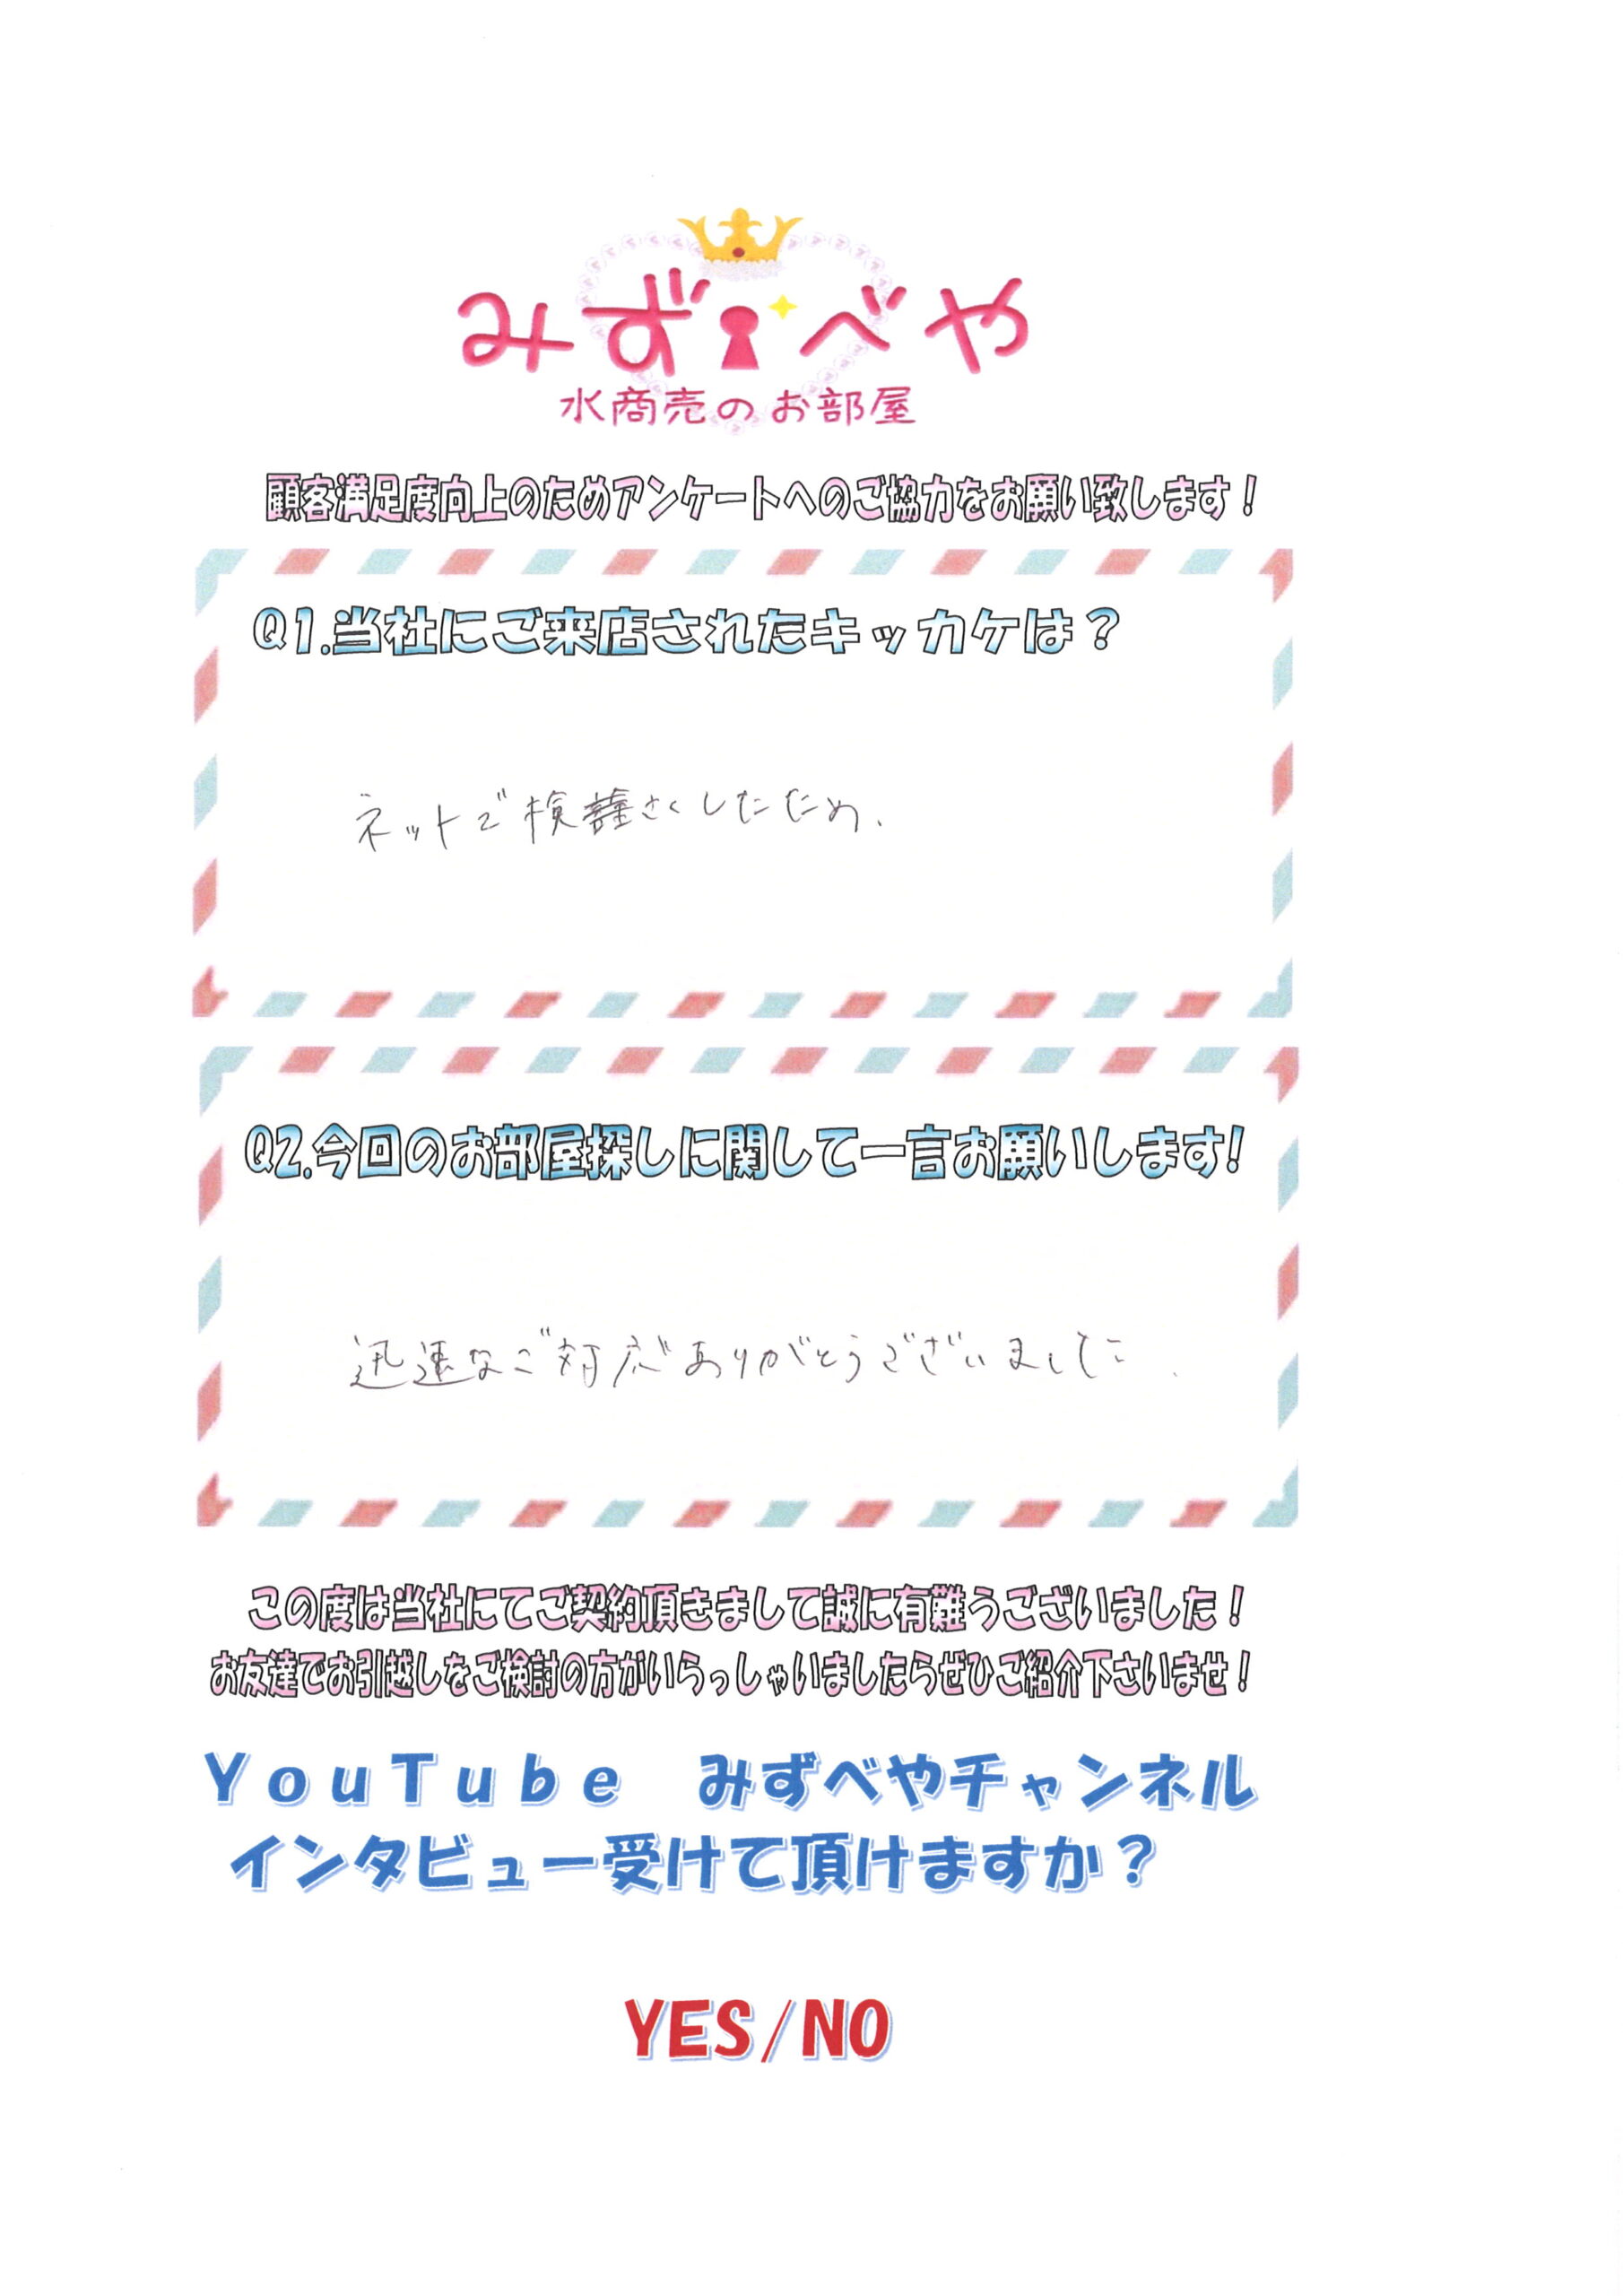 みずべや
水商売のお部屋
顧客満足度向上のためアンケートへのご協力をお願い致します！
Q1.当社にご来店されたキッカケは？
ネットで検さくしたため.
Q2.今回のお部屋探しに関して一言お願いします!
迅速なご対応ありがとうございました.
この度は当社にてご契約頂きまして誠に有難うございました！
お友達でお引越しをご検討の方がいらっしゃいましたらぜひご紹介下さいませ！
YouTube みずべやチャンネル
インタビュー受けて頂けますか？
YES/NO